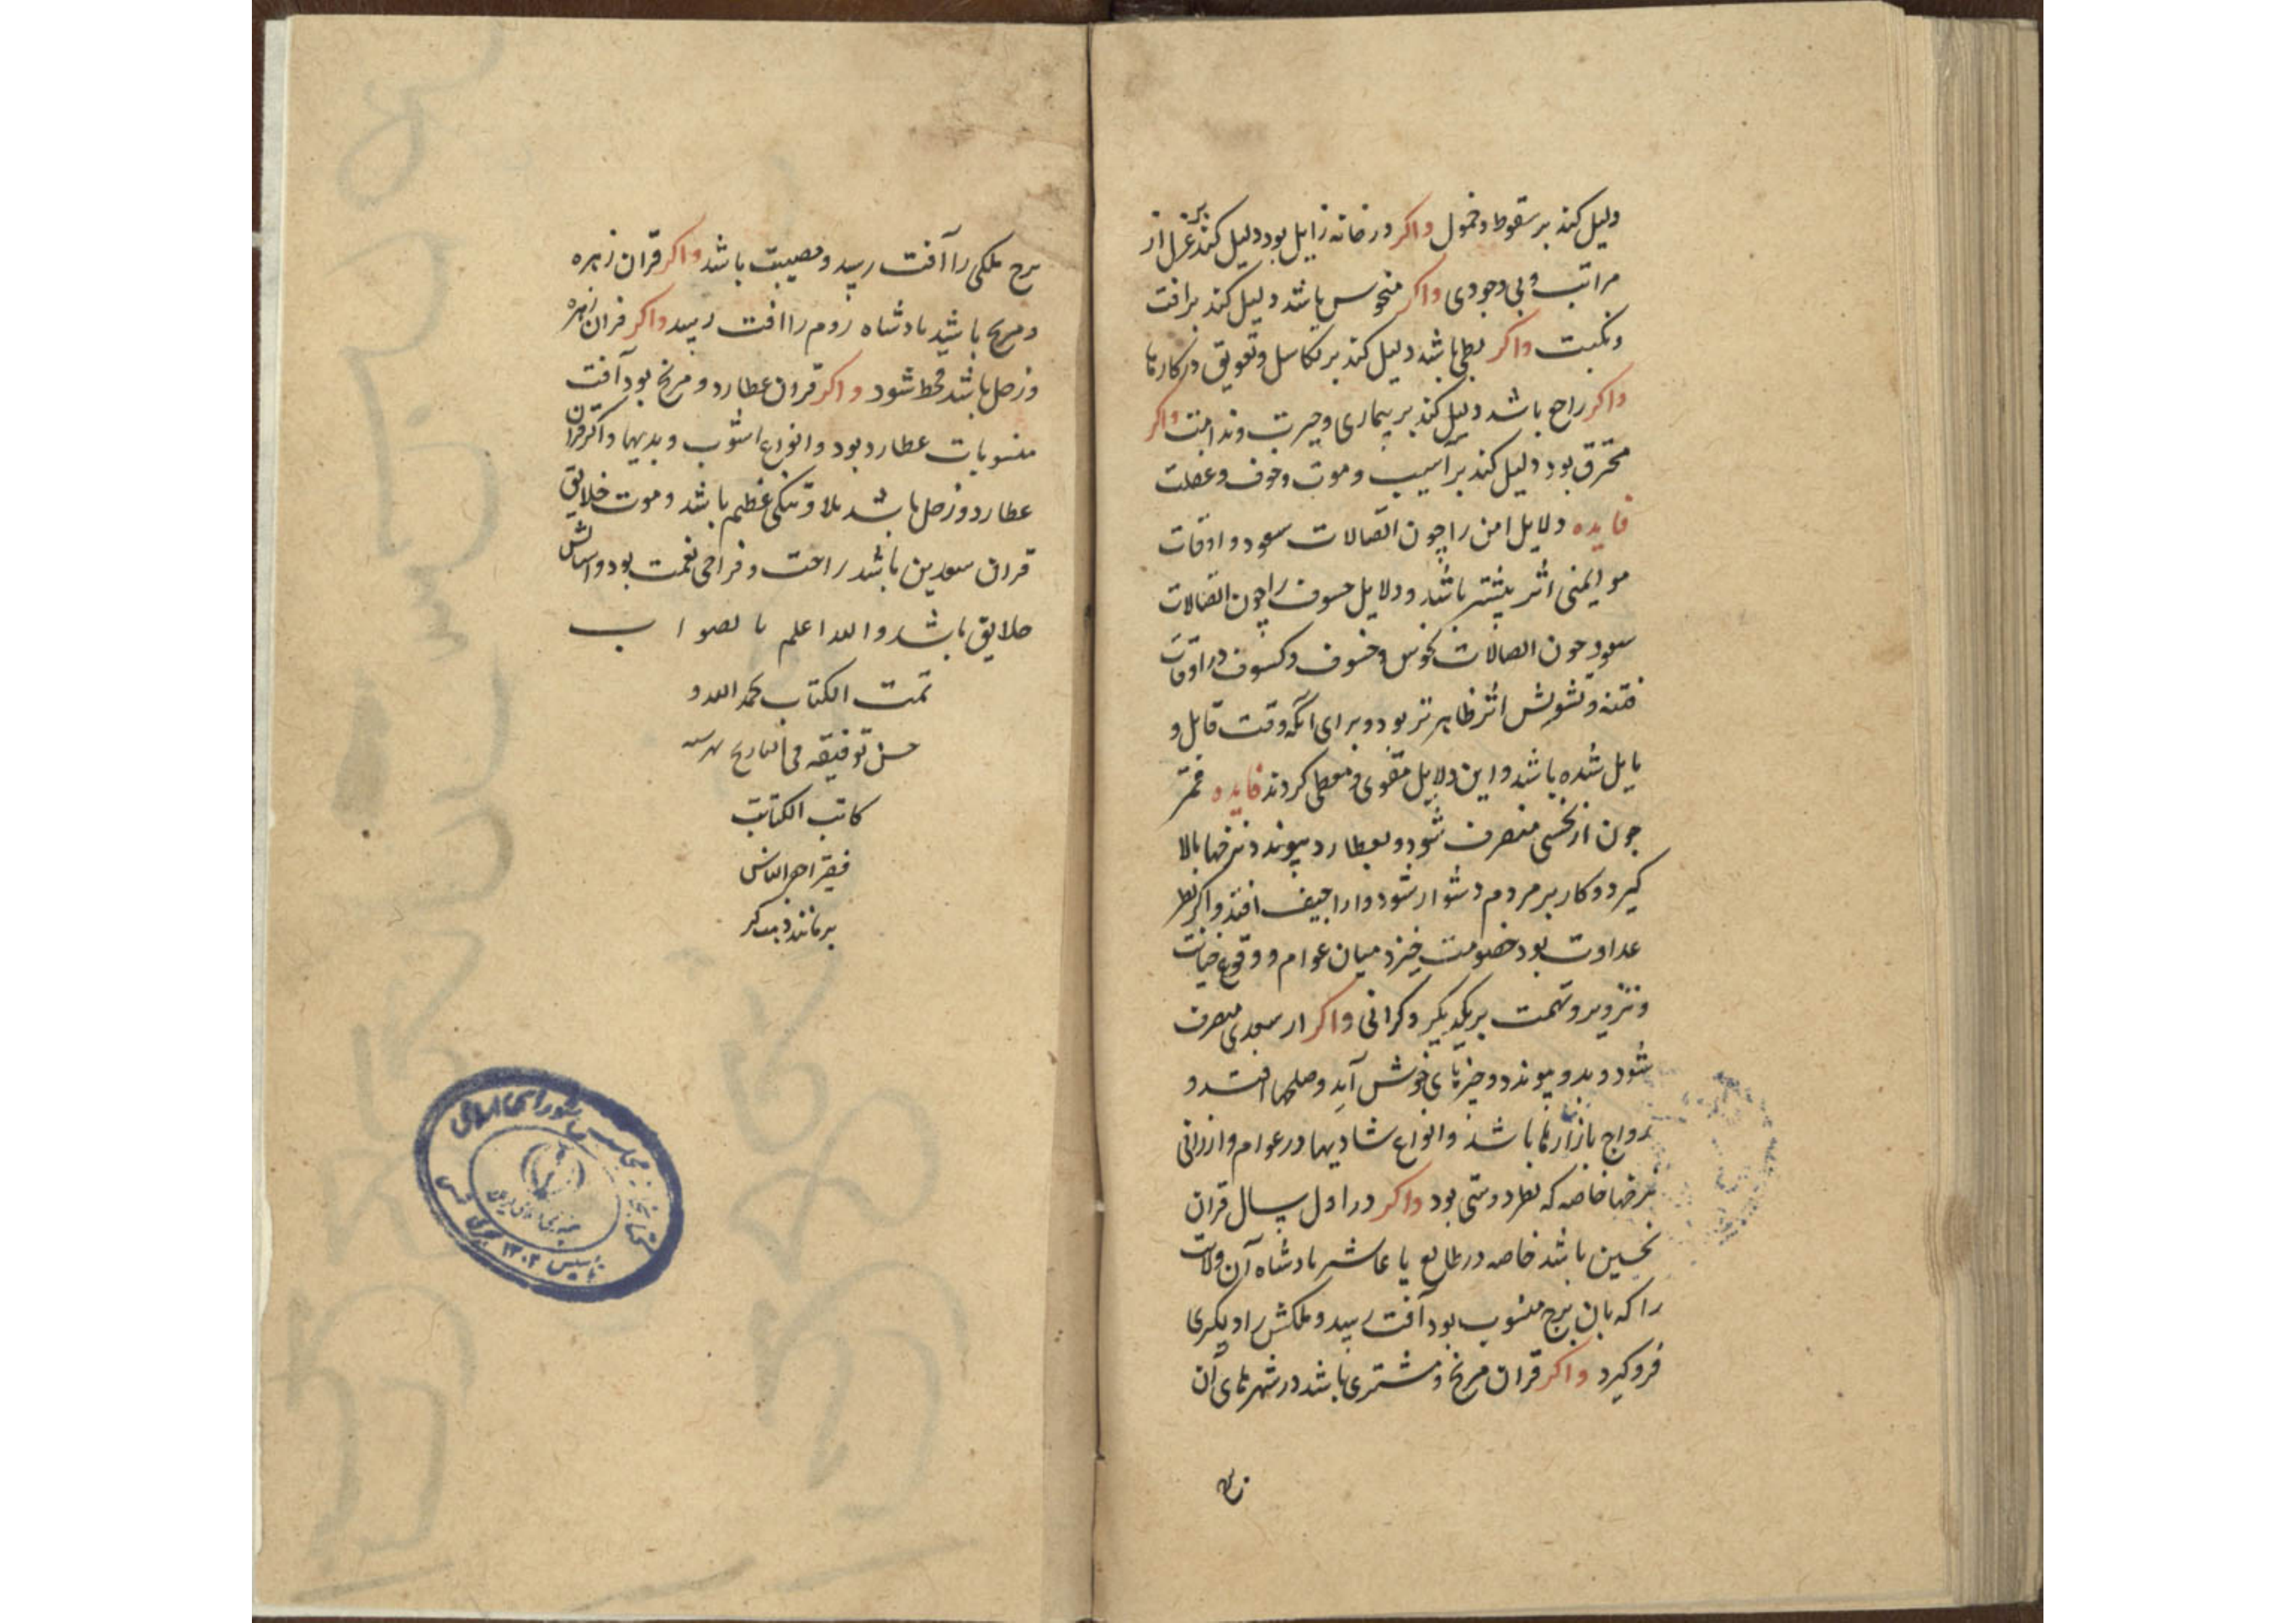 دلیل کند بر سقوط و خمول واکر در خانه زایل بود دلیل کند بر عزل از
مراتب و بی وجودی واکر منحوس باشد دلیل کند بر افت
و نکبت واکر بطی باشد دلیل کند بر تکاسل و تعویق در کارها
واکر راجع باشد دلیل کند بر بیماری و حیرت و ندامت واکر
محترق بود دلیل کند بر آسیب و موت و خوف و عطلت
فایده دلایل امن را چون اتصالات سعود و اوقات
مو ایمنی اثر بیشتر باشد و دلایل خسوف را چون اتصالات
سعود چون اتصالات نحوس و خسوف و کسوف در اوقات
فتنه و تشویش اثر ظاهرتر بود و برای آنکه وقت قابل و
مایل شده باشد و این دلایل مقوی و معطی کردند فایده قمر
چون از نحسی منصرف شود و بعطارد پیوندد نرخها بالا
کیرد و کار بر مردم دشوار شود و اراجیف افتد و اکر نظر
عداوت بود خصومت خیزد میان عوام و وقوع خیانت
و تزویر و تهمت بر یکدیکر و کرانی واکر از سعدی منصرف
شود و بدو پیوندد و خبرهای خوش آید و صلحها افتد و
رواج بازارها باشد و انواع شادیها در عوام و ارزانی
نرخها خاصه که نظر دوستی بود واکر در اول سال قران
نحسین باشد خاصه در طالع یا عاشر پادشاه آن ولایت
را که بان برج منسوب بود آفت رسد و ملکش را دیکری
فرو کیرد واکر قران مریخ و مشتری باشد در شهرهای آن
برج ملکی را آفت رسد و مصیبت باشد واکر قران زهره
و مریخ باشد پادشاه روم را افت رسد واکر قران زهره
و زحل باشد قحط شود واکر قران عطارد و مریخ بود آفت
منسوبات عطارد بود و انواع اشوب و بدیها واکر قران
عطارد و زحل باشد بلا و تنکی عظیم باشد و موت خلایق
قران سعدین باشد راحت و فراخی نعمت بود و اسایش
خلایق باشد والله اعلم بالصواب
تمت الکتاب بحمد الله و
حسن توفیقه فی التاریخ
کاتب الکتاب
فقیر احقر الناس
مجلس شورای اسلامی
تاسیس ۱۳۰۲